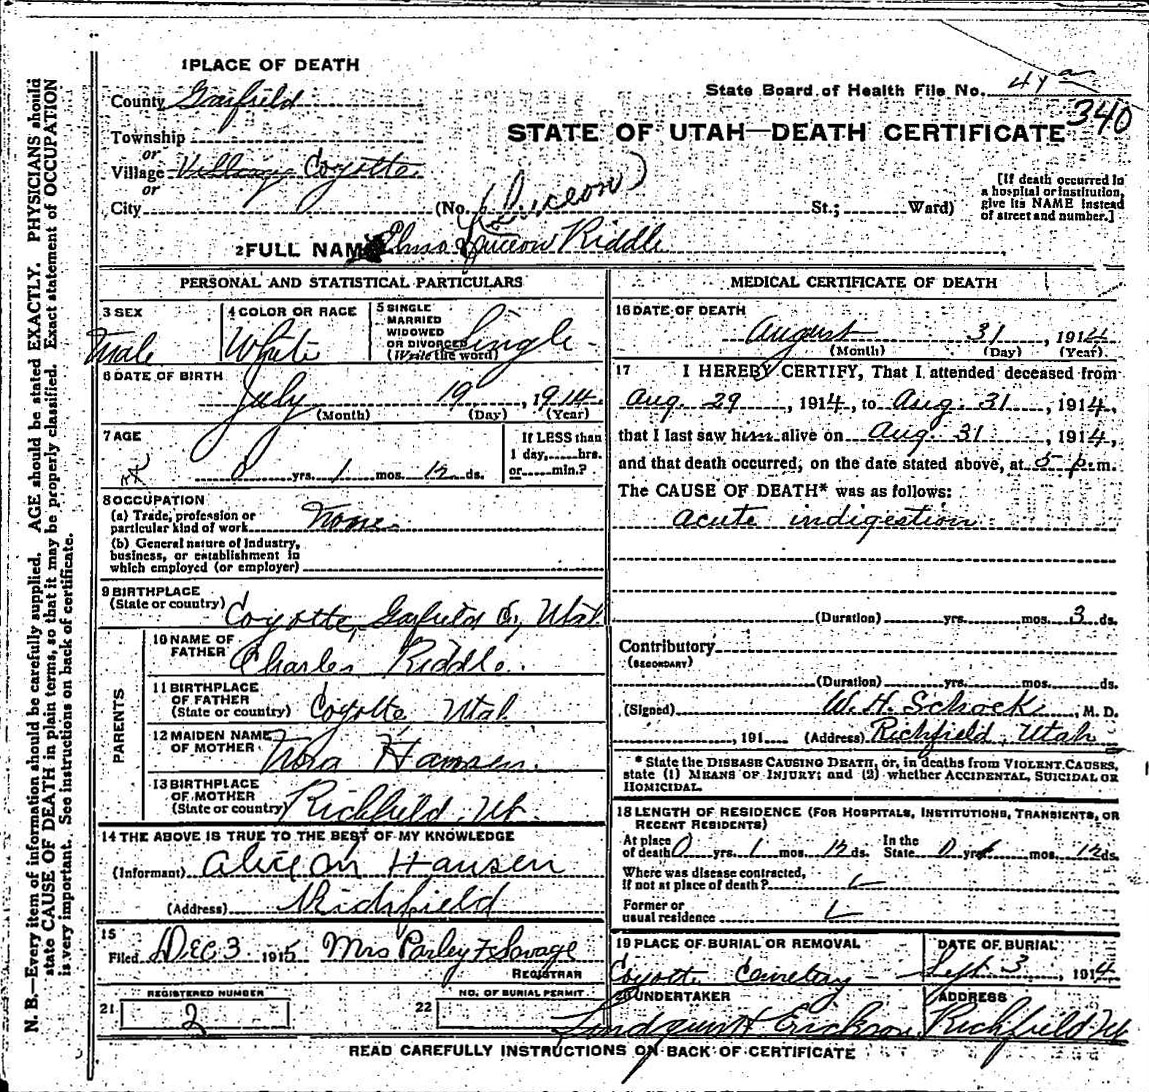 1 PLACE OF DEATH
County Garfield
State Board of Health File No. 41 a
340
STATE OF UTAH—DEATH CERTIFICATE
Township
or
Village Village Coyotte
or
City (No. (Luceon) St.; Ward)
[If death occurred in
a hospital or institution,
give its NAME instead
of street and number.]
2 FULL NAME Elmo Luceon Riddle
PERSONAL AND STATISTICAL PARTICULARS
3 SEX
Male
4 COLOR OR RACE
White
5 SINGLE
MARRIED
WIDOWED
OR DIVORCED
(Write the word)
Single
6 DATE OF BIRTH
July 19, 1914
(Month) (Day) (Year)
7 AGE
0 yrs. 1 mos. 12 ds.
If LESS than
1 day, hrs.
or min.?
8 OCCUPATION
(a) Trade, profession or
particular kind of work None
(b) General nature of Industry,
business, or establishment in
which employed (or employer)
9 BIRTHPLACE
(State or country) Coyotte, Garfield Co, Utah
PARENTS
10 NAME OF
FATHER Charles Riddle
11 BIRTHPLACE
OF FATHER
(State or country) Coyotte, Utah
12 MAIDEN NAME
OF MOTHER Nora Hansen
13 BIRTHPLACE
OF MOTHER
(State or country) Richfield, Ut.
14 THE ABOVE IS TRUE TO THE BEST OF MY KNOWLEDGE
(Informant) Alice M Hansen
(Address) Richfield
15
Filed Dec 3 1915 Mrs Parley F Savage
REGISTRAR
REGISTERED NUMBER
21 2
NO. OF BURIAL PERMIT
22
MEDICAL CERTIFICATE OF DEATH
16 DATE OF DEATH
August 31, 1914
(Month) (Day) (Year)
17 I HEREBY CERTIFY, That I attended deceased from
Aug. 29, 1914, to Aug. 31, 1914,
that I last saw him alive on Aug. 31, 1914,
and that death occurred, on the date stated above, at 5 p.m.
The CAUSE OF DEATH* was as follows:
acute indigestion
(Duration) yrs. mos. 3 ds.
Contributory
(SECONDARY)
(Duration) yrs. mos. ds.
(Signed) W. H. Schock, M. D.
, 191 (Address) Richfield, Utah
* State the DISEASE CAUSING DEATH, or, in deaths from VIOLENT CAUSES,
state (1) MEANS OF INJURY; and (2) whether ACCIDENTAL, SUICIDAL OR
HOMICIDAL.
18 LENGTH OF RESIDENCE (FOR HOSPITALS, INSTITUTIONS, TRANSIENTS, OR
RECENT RESIDENTS)
At place
of death 0 yrs. 1 mos. 12 ds. In the
State 0 yrs. 1 mos. 12 ds.
Where was disease contracted,
If not at place of death?
Former or
usual residence
19 PLACE OF BURIAL OR REMOVAL
Coyotte Cemetery
DATE OF BURIAL
Sept 3, 1914
20 UNDERTAKER
Lindquist Erickson
ADDRESS
Richfield Ut
READ CAREFULLY INSTRUCTIONS ON BACK OF CERTIFICATE
N. B.—Every item of information should be carefully supplied. AGE should be stated EXACTLY. PHYSICIANS should
state CAUSE OF DEATH in plain terms, so that it may be properly classified. Exact statement of OCCUPATION
is very important. See instructions on back of certificate.